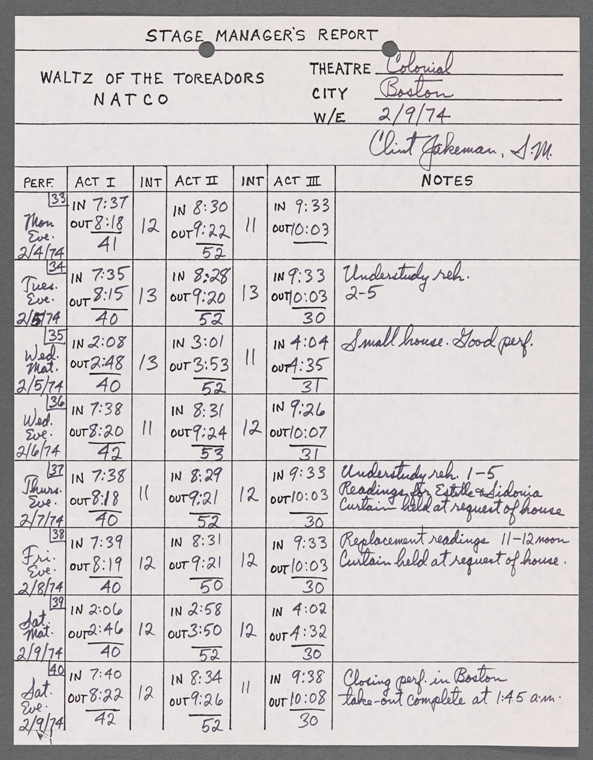 STAGE MANAGER'S REPORT
WALTZ OF THE TOREADORS
NATCO
THEATRE Colonial
CITY Boston
W/E 2/9/74
Clint Jakeman, S.M.
PERF. ACT I INT ACT II INT ACT III NOTES
33
Mon Eve. 2/4/74
IN 7:37 OUT 8:18 41
12
IN 8:30 OUT 9:22 52
11
IN 9:33 OUT 10:03
34
Tues. Eve. 2/5/74
IN 7:35 OUT 8:15 40
13
IN 8:28 OUT 9:20 52
13
IN 9:33 OUT 10:03 30
Understudy reh.
2-5
35
Wed. Mat. 2/5/74
IN 2:08 OUT 2:48 40
13
IN 3:01 OUT 3:53 52
11
IN 4:04 OUT 4:35 31
Small house. Good perf.
36
Wed. Eve. 2/6/74
IN 7:38 OUT 8:20 42
11
IN 8:31 OUT 9:24 53
12
IN 9:26 OUT 10:07 31
37
Thurs. Eve. 2/7/74
IN 7:38 OUT 8:18 40
11
IN 8:29 OUT 9:21 52
12
IN 9:33 OUT 10:03 30
Understudy reh. 1-5
Readings for Estelle & Sidonia
Curtain held at request of house
38
Fri. Eve. 2/8/74
IN 7:39 OUT 8:19 40
12
IN 8:31 OUT 9:21 50
12
IN 9:33 OUT 10:03 30
Replacement readings 11-12 noon
Curtain held at request of house.
39
Sat. Mat. 2/9/74
IN 2:06 OUT 2:46 40
12
IN 2:58 OUT 3:50 52
12
IN 4:02 OUT 4:32 30
40
Sat. Eve. 2/9/74
IN 7:40 OUT 8:22 42
12
IN 8:34 OUT 9:26 52
11
IN 9:38 OUT 10:08 30
Closing perf. in Boston
take-out complete at 1:45 a.m.